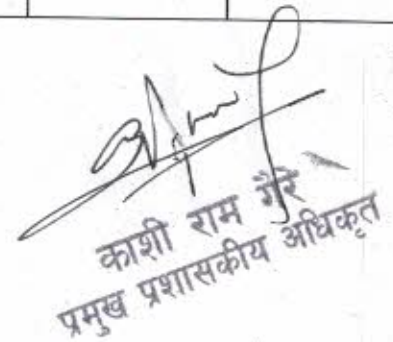 काशी राम गैरे
प्रमुख प्रशासकीय अधिकृत